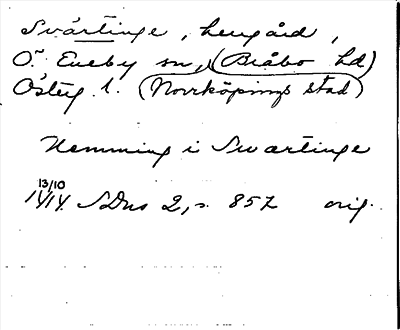 Svärtinge, herrgård,
Ö. Eneby sn, (Bråbo hd)
Österg. l. (Norrköpings stad)
Hemming i Swartinge
13/10
1414 SDns 2, s. 857 orig.